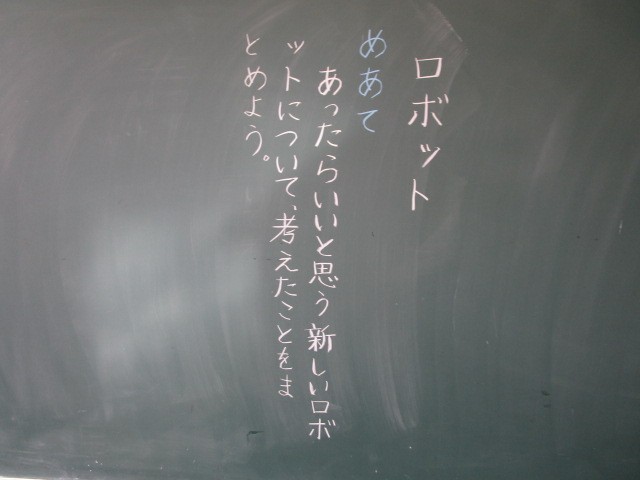 ロボット
めあて
あったらいいと思う新しいロボ
ットについて、考えたことをま
とめよう。